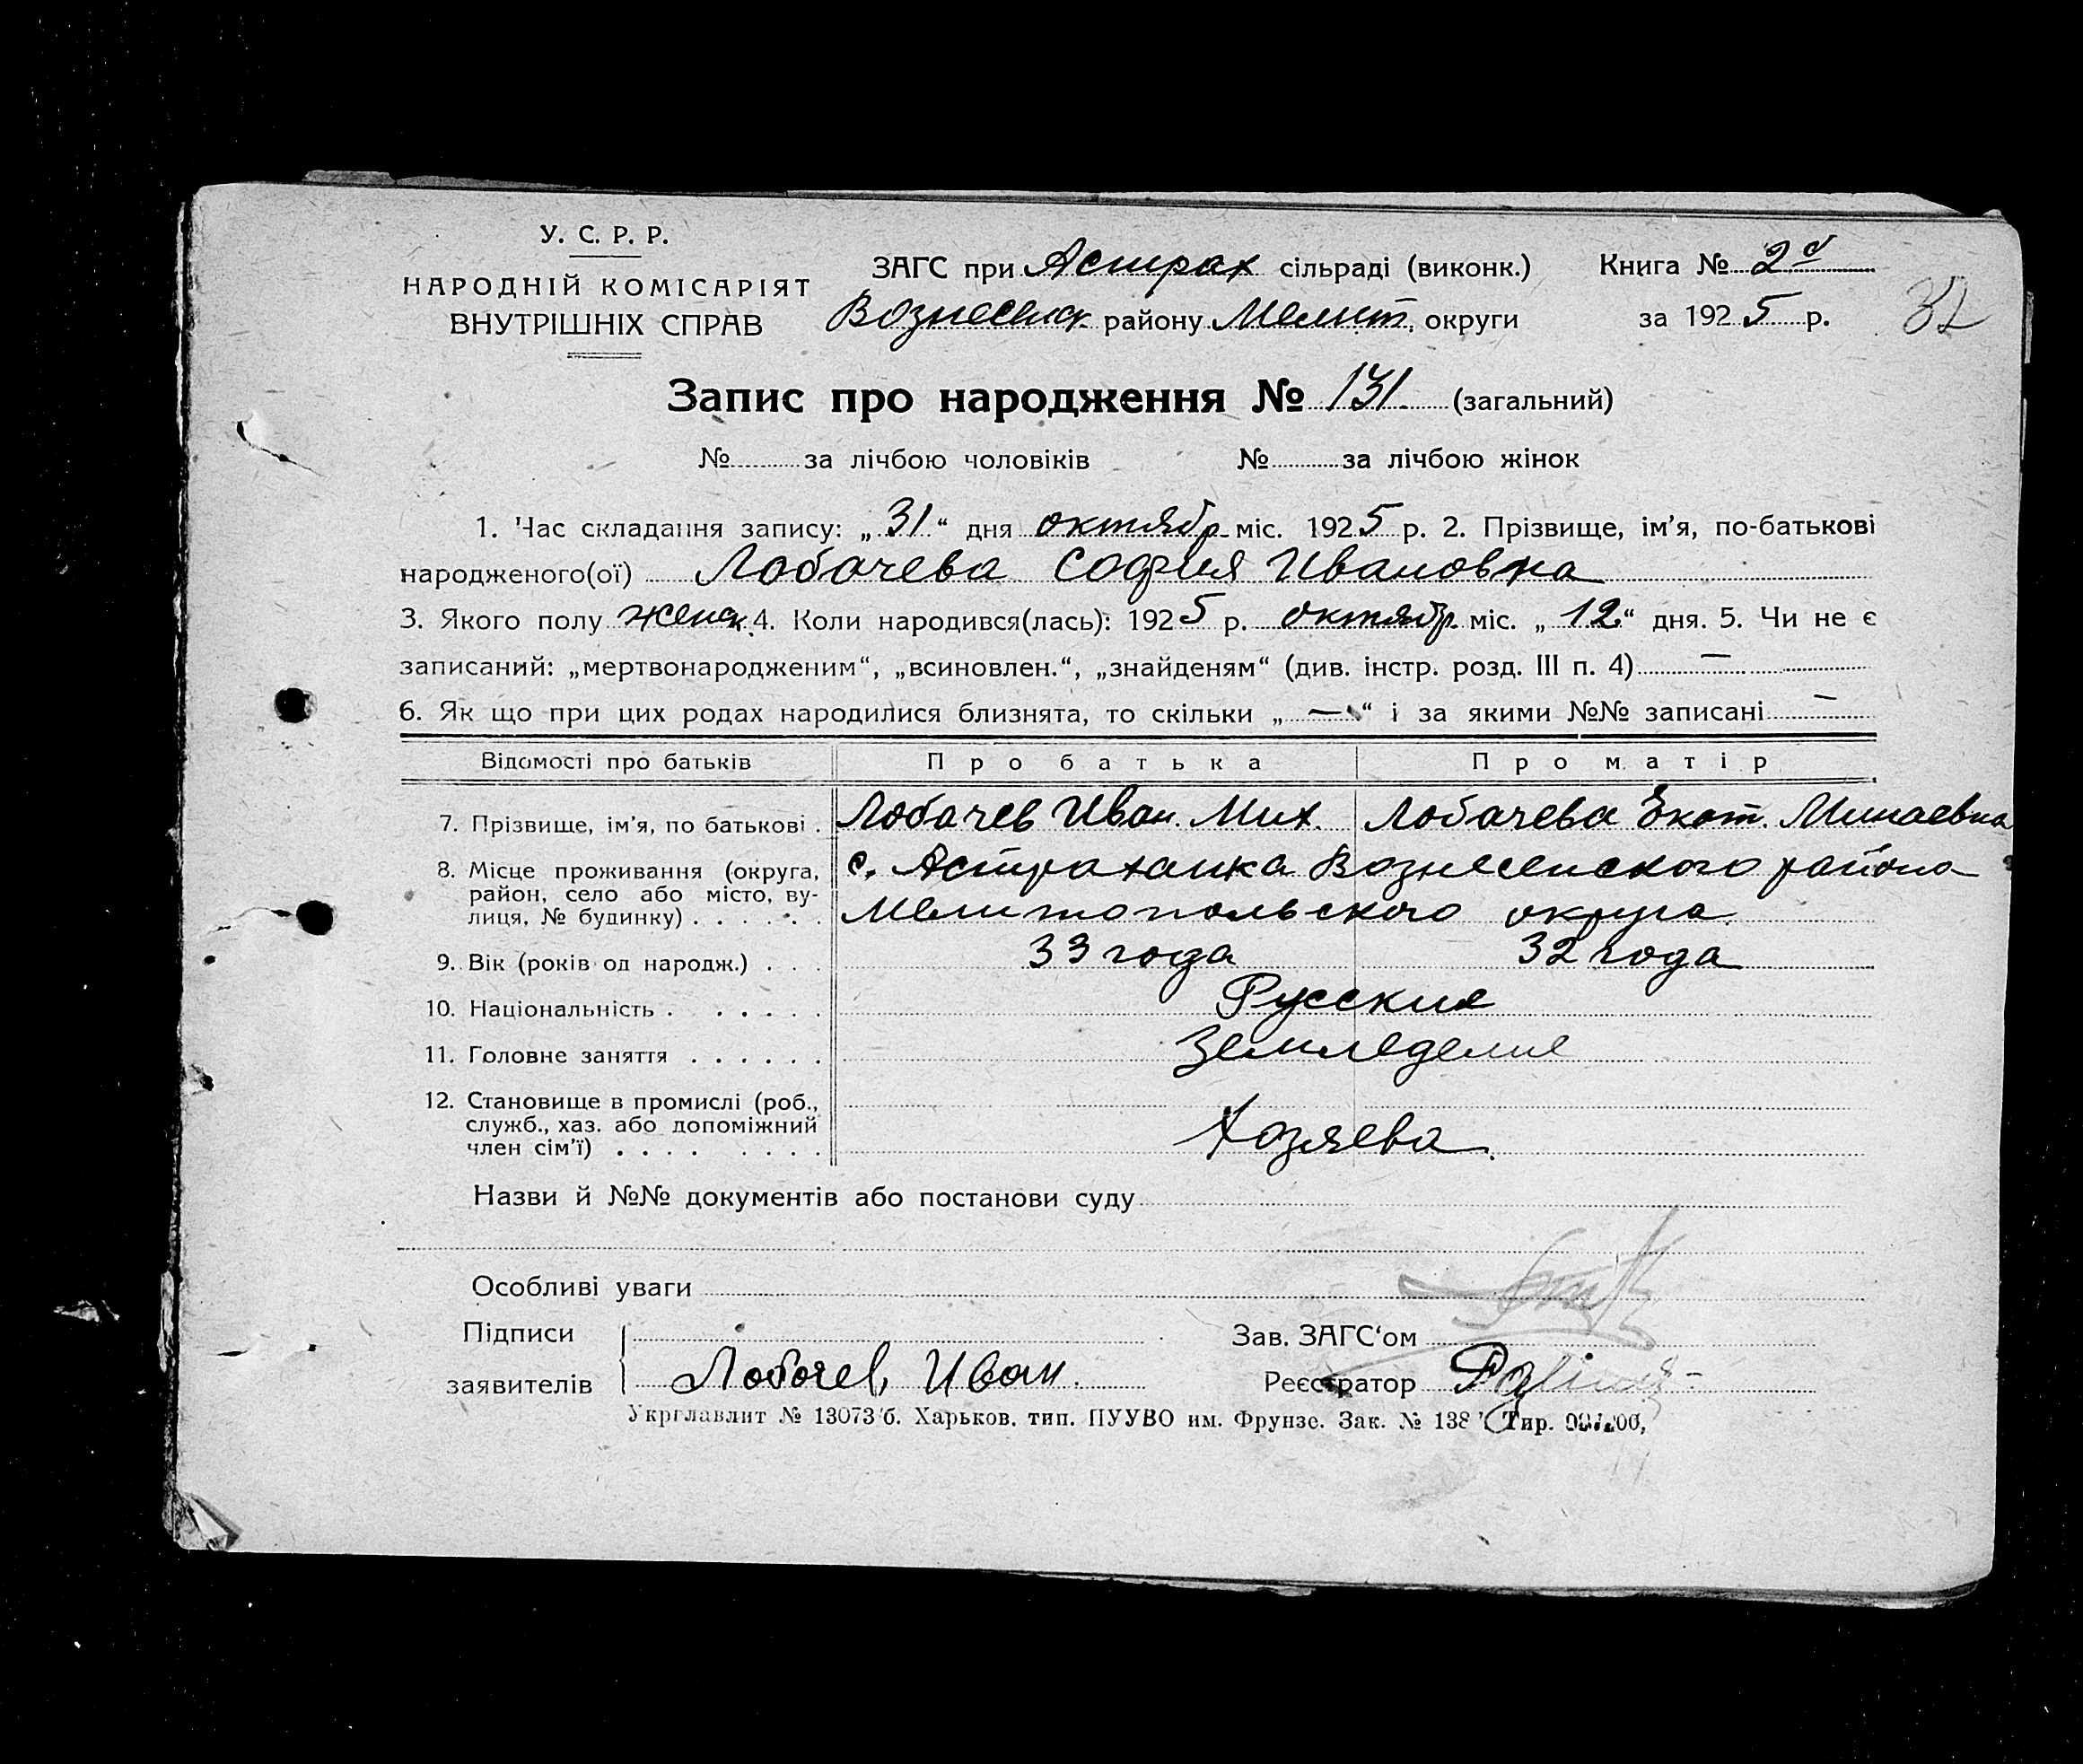 У. С. Р. Р.
НАРОДНІЙ КОМІСАРІЯТ
ВНУТРІШНІХ СПРАВ
ЗАГС при Астрах сільраді (виконк.)
Вознесенск. району Мелит. округи
Книга № 2й
за 1925 р.
32
Запис про народження № 131 (загальний)
№ за лічбою чоловіків № за лічбою жінок
1. Час складання запису: „31“ дня октябр. міс. 1925 р. 2. Прізвище, ім’я, по-батькові
народженого(ої) Лобачева София Ивановна
3. Якого полу женск. 4. Коли народився(лась): 1925 р. октябр. міс. „12“ дня. 5. Чи не є
записаний: „мертвонародженим“, „всиновлен.“, „знайденям“ (див. інстр. розд. III п. 4) —
6. Як що при цих родах народилися близнята, то скільки „—“ і за якими №№ записані —
Відомості про батьків Про батька Про матір
7. Прізвище, ім’я, по батькові . Лобачев Иван. Мих. Лобачева Екат. Минаевна
8. Місце проживання (округа, район, село або місто, вулиця, № будинку) . . . . . с. Астраханка Вознесенского района
Мелитопольского округа.
9. Вік (років од народж.) . . . 33 года 32 года
10. Національність . . . . . . Русские
11. Головне заняття . . . . . . Земледелие
12. Становище в промислі (роб., служб., хаз. або допоміжний член сім’ї) . . . . . . . . Хозяева.
Назви й №№ документів або постанови суду
Особливі уваги
Підписи
заявителів Лобачев, Иван.
Зав. ЗАГС‘ом
Реєстратор
Укрглавлит № 13073 б. Харьков. тип. ПУУВО им. Фрунзе. Зак. № 138 Тир.